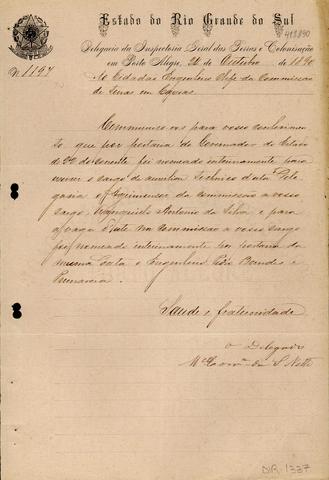 Estado do Rio Grande do Sul
Delegacia da Inspectoria Geral das Terras e Colonisação
em Porto Alegre, 22 de Outubro de 1890
411.890
Nº 1194
Ao Cidadão Engenheiro Chefe da Commissão
de terras em Caxias.
Communico-vos para vosso conhecimento
que por portaria do Governador do Estado
de 22 do corrente foi nomeado interinamente para
exercer o cargo de auxiliar technico desta Dele
gacia o Agrimensor da Commissão a vosso
cargo, Antonio da Silva e para
a vaga deste na Commissão a vosso cargo
foi nomeado interinamente por portaria da
mesma data o Engenheiro
Saude e fraternidade
O Delegado
Netto
DIR. 1337